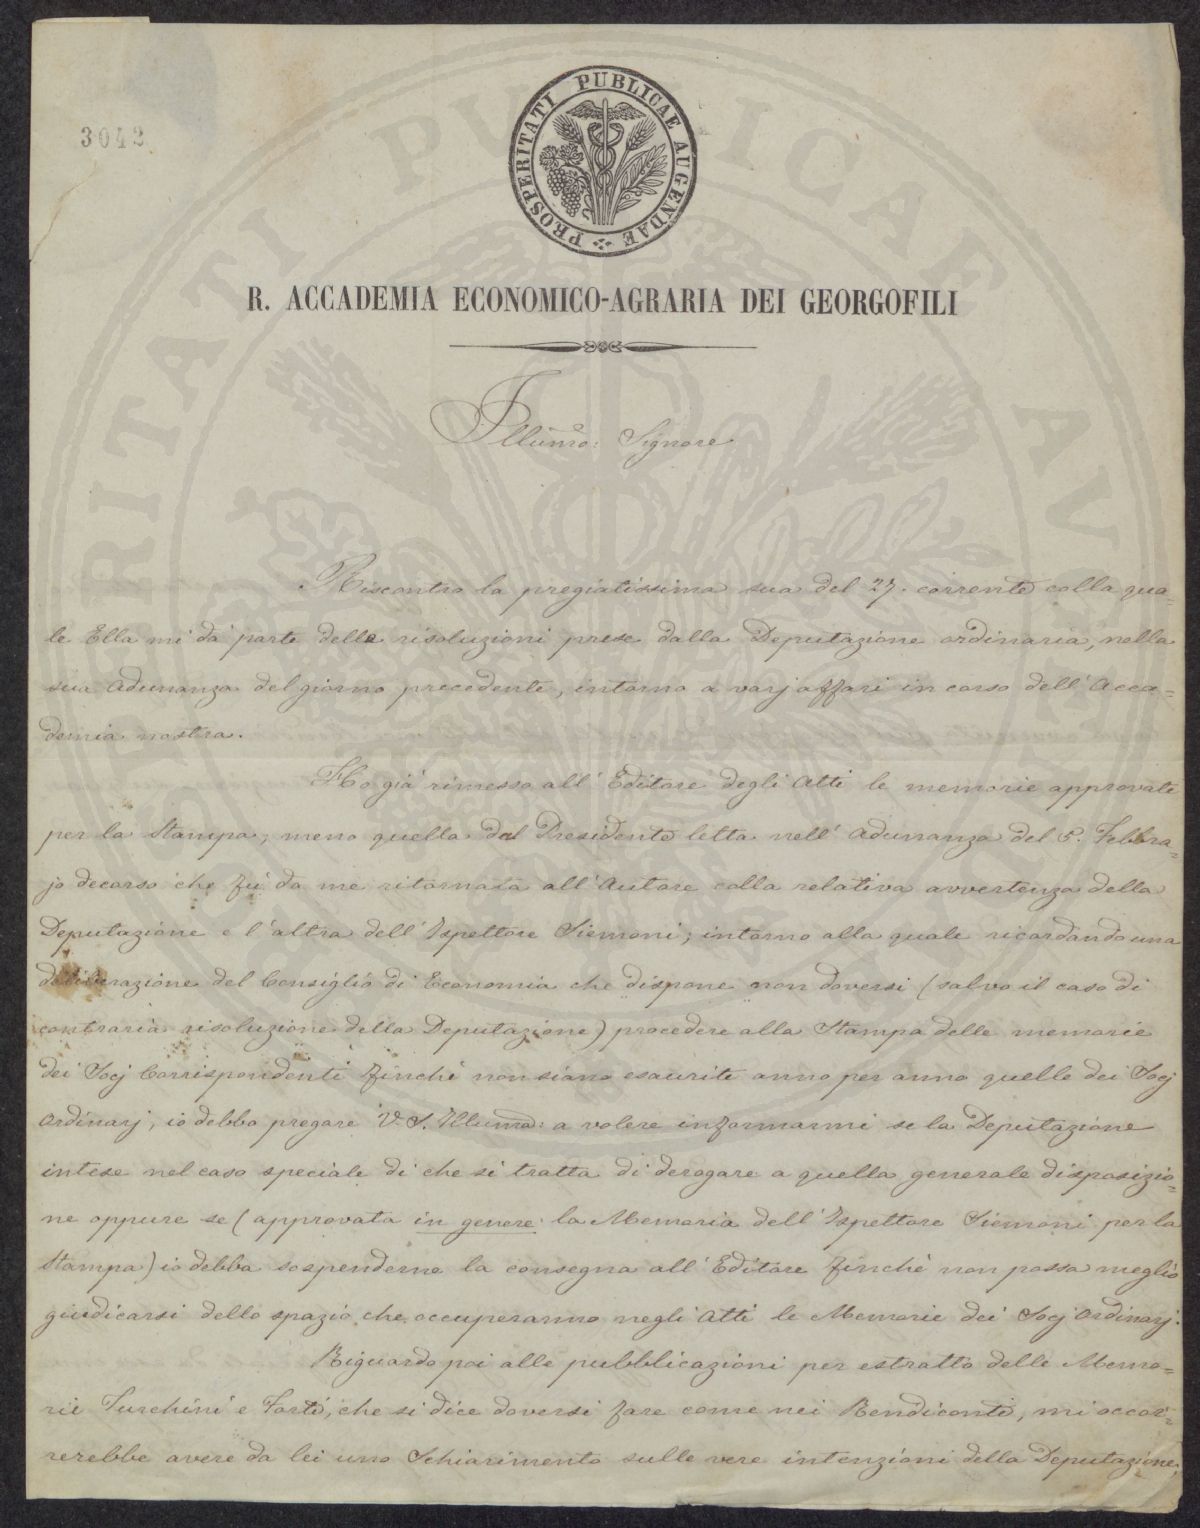 3042
PROSPERITATI PUBLICAE AUGENDAE
R. ACCADEMIA ECONOMICO-AGRARIA DEI GEORGOFILI
Illumo: Signore
Riscontro la pregiatissima sua del 27. corrente colla qua-
le Ella mi dà parte delle risoluzioni prese dalla Deputazione ordinaria, nella
sua Adunanza del giorno precedente, intorno a varj affari in corso dell'Acca-
demia nostra.
Ho già rimesso all'Editore degli Atti le memorie approvate
per la Stampa, meno quella del Presidente letta nell'Adunanza del 5. Febbra-
jo decorso che fu da me ritornata all'Autore colla relativa avvertenza della
Deputazione e l'altra dell'Ispettore Siemoni; intorno alla quale ricordando una
deliberazione del Consiglio di Economia che dispone non doversi (salvo il caso di
contraria risoluzione della Deputazione) procedere alla Stampa delle memorie
dei Socj Corrispondenti finchè non siano esaurite anno per anno quelle dei Socj
Ordinarj, io debbo pregare V. S. Illuma: a volere informarmi se la Deputazione
intese nel caso speciale di che si tratta di derogare a quella generale disposizio-
ne oppure se (approvata in genere la Memoria dell'Ispettore Siemoni per la
Stampa) io debba sospenderne la consegna all'Editore finchè non possa meglio
giudicarsi dello spazio che occuperanno negli Atti le Memorie dei Socj Ordinarj.
Riguardo poi alle pubblicazioni per estratto delle Memo-
rie Turchini e Forti, che si dice doversi fare come nei Rendiconti, mi occor-
rerebbe avere da lei uno Schiarimento sulle vere intenzioni della Deputazione,